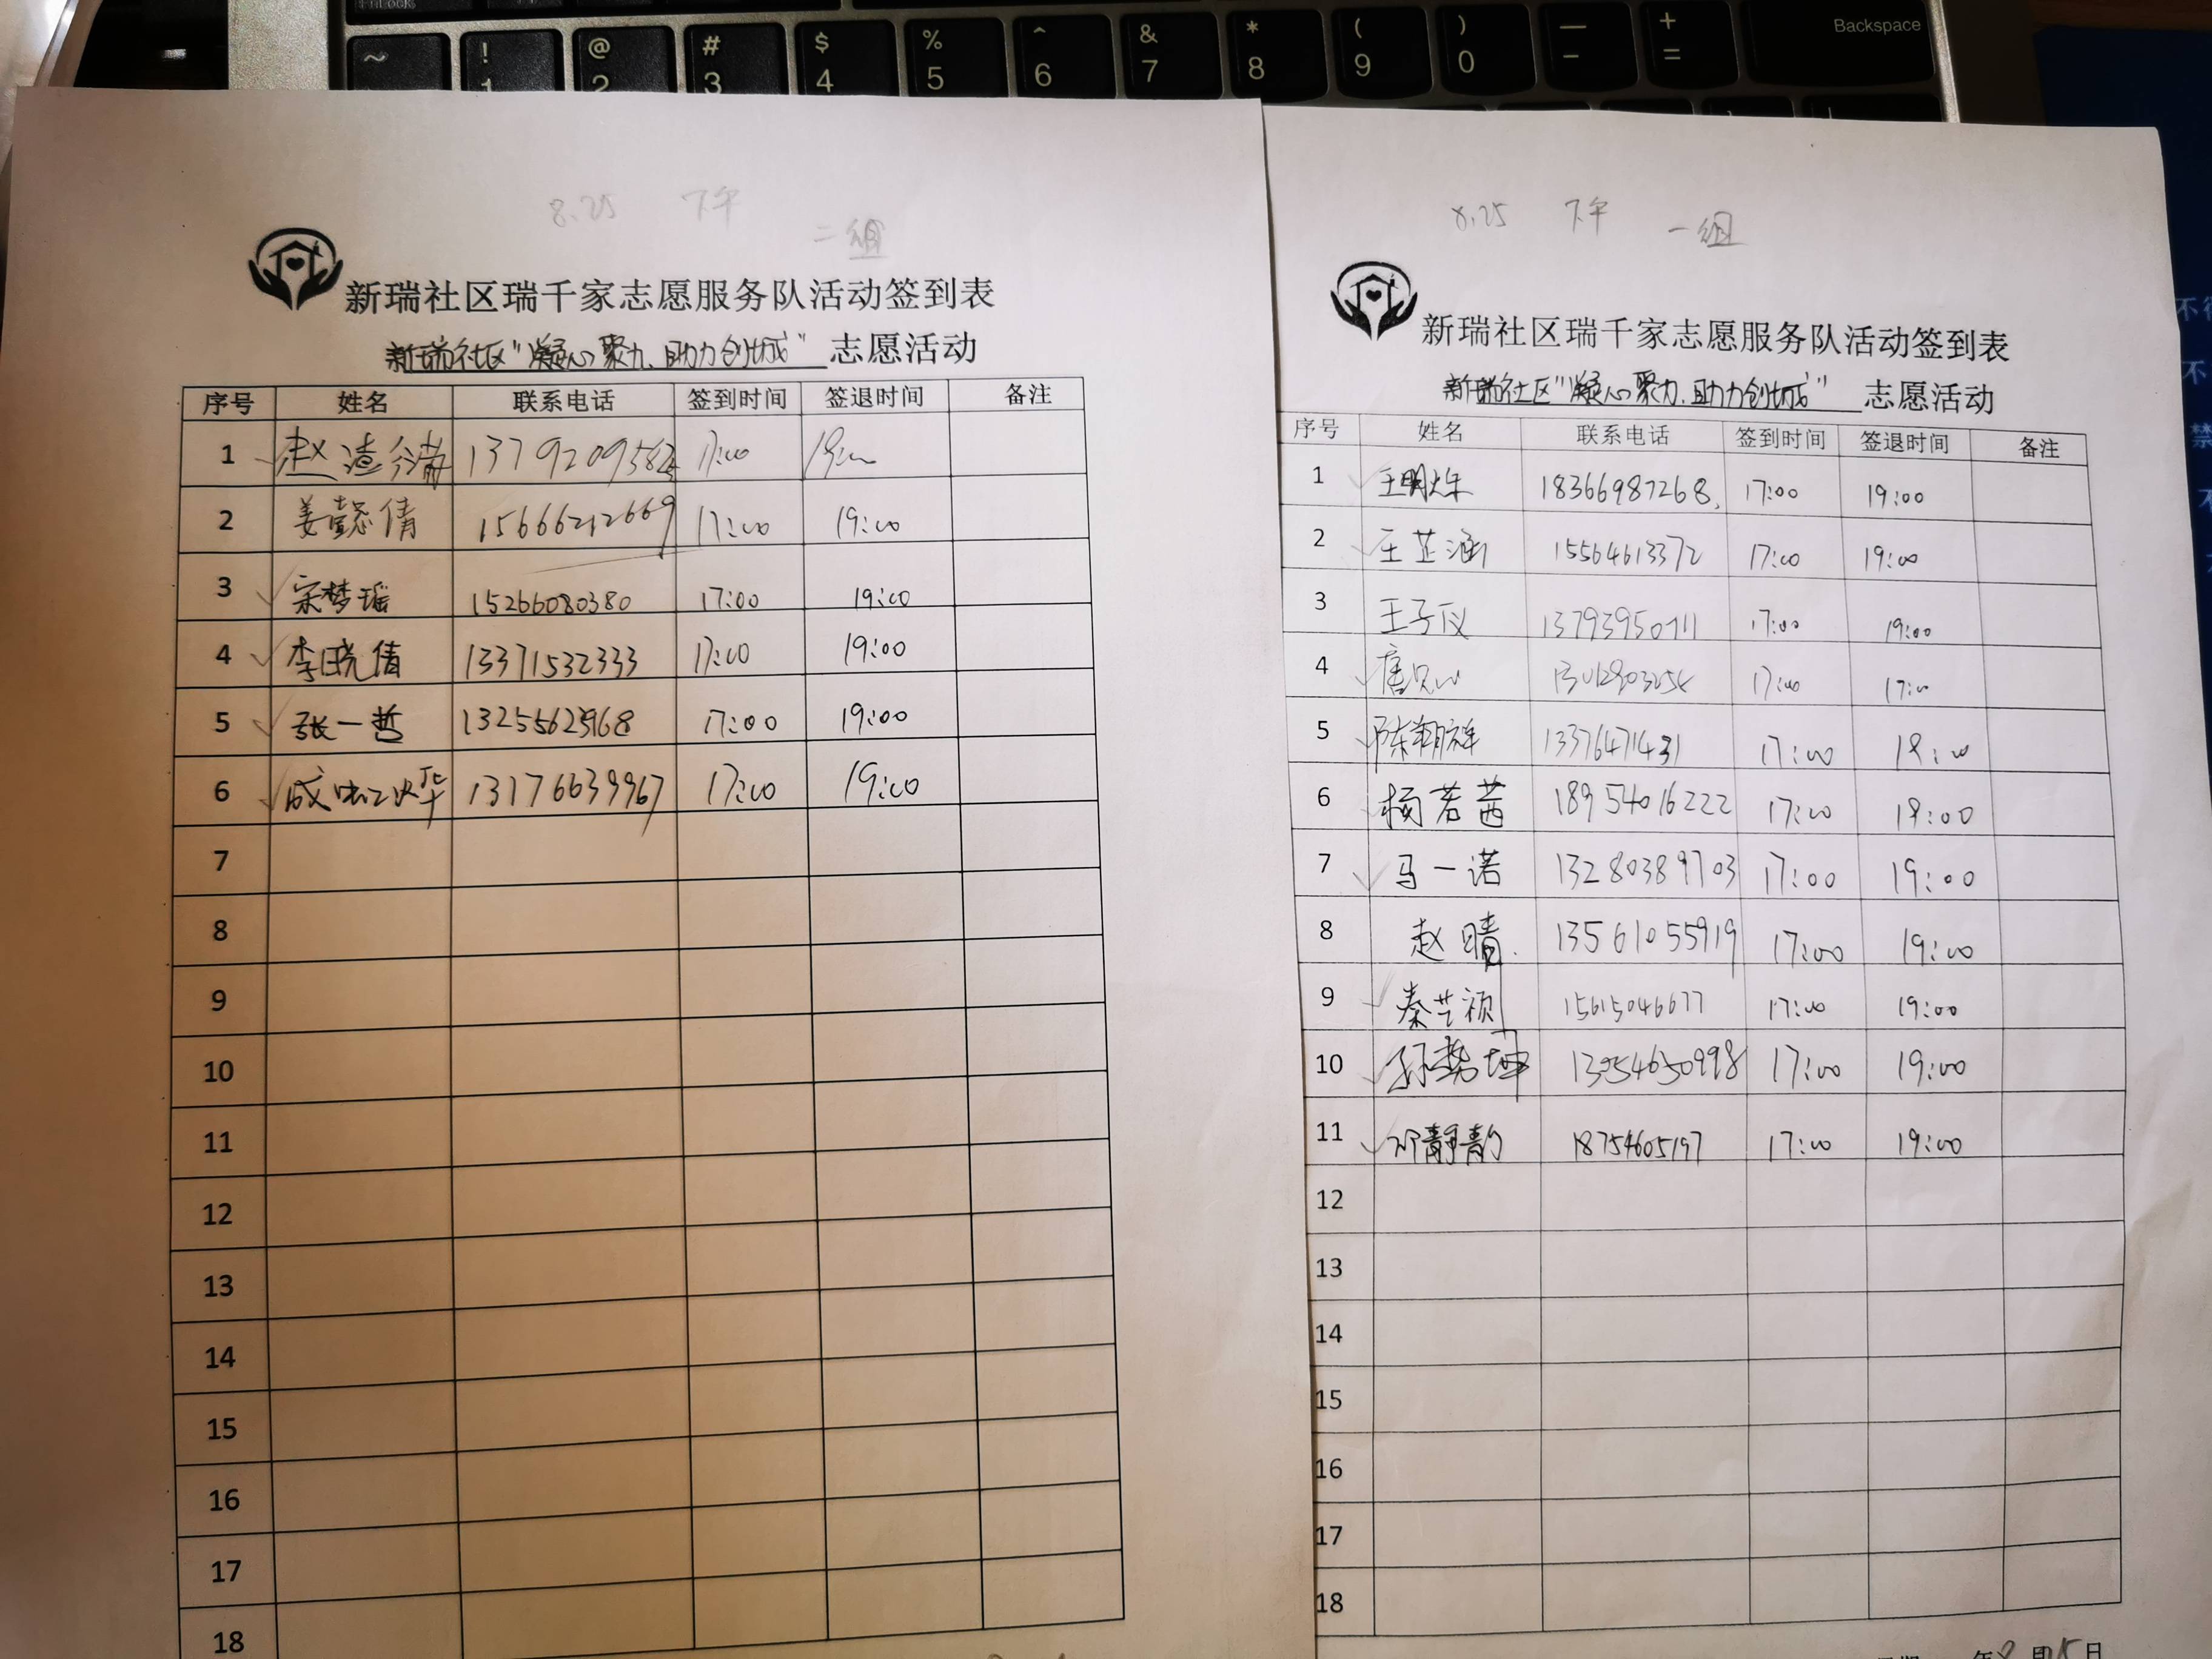 Backspace
~ ! @ # $ % ^ & * ( ) — +
1 2 3 4 5 6 7 8 9 0 - =
8.25 下午
二组
新瑞社区瑞千家志愿服务队活动签到表
新瑞社区"凝心聚力、助力创城" 志愿活动
序号 姓名 联系电话 签到时间 签退时间 备注
1 赵 17:00
2 姜懿倩 15666212669 17:00 19:00
3 宋梦瑶 15266080380 17:00 19:00
4 李晓倩 13371532333 17:00 19:00
5 张一哲 17:00 19:00
6 13176639967 17:00 19:00
7
8
9
10
11
12
13
14
15
16
17
18
8.25 下午
一组
新瑞社区瑞千家志愿服务队活动签到表
新瑞社区"凝心聚力、助力创城" 志愿活动
序号 姓名 联系电话 签到时间 签退时间 备注
1 18366987268 17:00 19:00
2 王芷涵 15564613372 17:00 19:00
3 王子仪 17:00 19:00
4 唐 17:00
5 陈翔 17:00
6 杨若茜 18954016222 17:00
7 马一诺 13280389703 17:00 19:00
8 赵晴 13561055919 17:00 19:00
9 秦芷颖 15615046677 17:00 19:00
10 17:00 19:00
11 邓静韵 18754605197 17:00 19:00
12
13
14
15
16
17
18
年8月25日